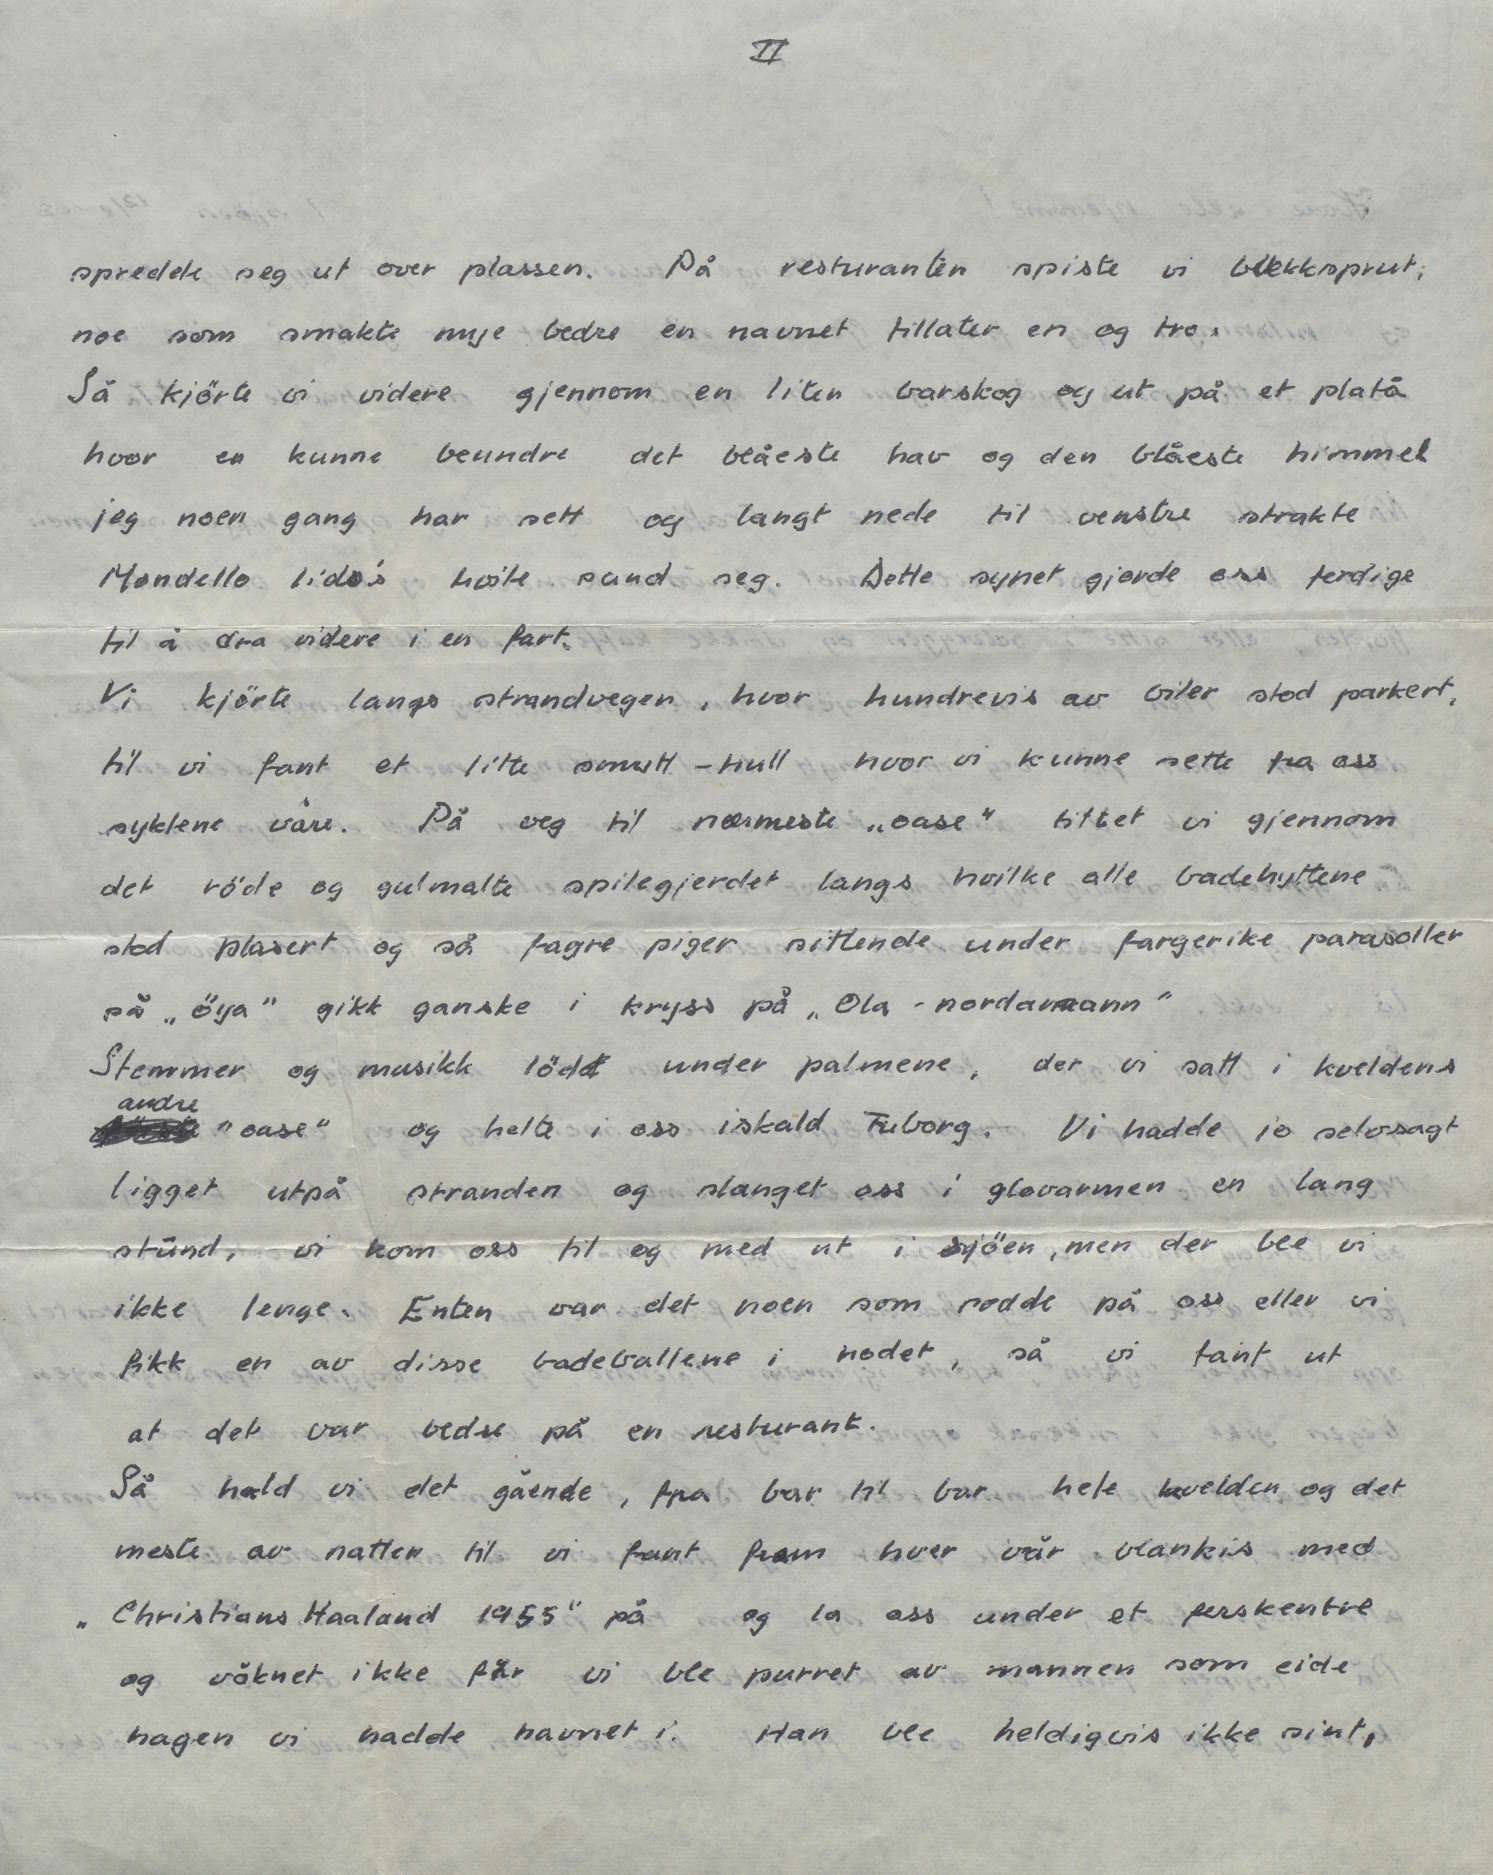 II
spredde seg ut over plassen. På resturanten spiste vi blekksprut,
noe som smakte mye bedre en navnet tillater en og tro.
Så kjörte vi videre gjennom en liten barskog og ut på et platå
hvor en kunne beundre det blåeste hav og den blåeste himmel
jeg noen gang har sett og langt nede til venstre strakte
Mondello lido's hvite sand seg. Dette synet gjorde oss ferdige
til å dra videre i en fart.
Vi kjörte langs strandvegen, hvor hundrevis av biler stod parkert,
til vi fant et lite smutt-hull hvor vi kunne sette fra oss
syklene våre. På veg til nærmeste „oase" tittet vi gjennom
det röde og gulmalte spilegjerdet langs hvilke alle badehyttene
stod plasert og så fagre piger sittende under fargerike parasoller
så „öya" gikk ganske i kryss på „Ola-nordamann"
Stemmer og musikk lödt under palmene, der vi satt i kveldens
andre
"oase" og helte i oss iskald Tuborg. Vi hadde jo selvsagt
ligget utpå stranden og slanget oss i glovarmen en lang
stund, vi kom oss til og med ut i sjöen, men der ble vi
ikke lenge. Enten var det noen som rodde på oss eller vi
fikk en av disse badeballene i hodet, så vi fant ut
at det var bedre på en resturant.
Så hold vi det gående, fra bar til bar hele kvelden og det
meste av natten til vi fant fram hver vår blankis med
„Christians Haaland 1955" på og la oss under et ferskentre
og våknet ikke før vi ble purret av mannen som eide
hagen vi hadde havnet i. Han ble heldigvis ikke sint,